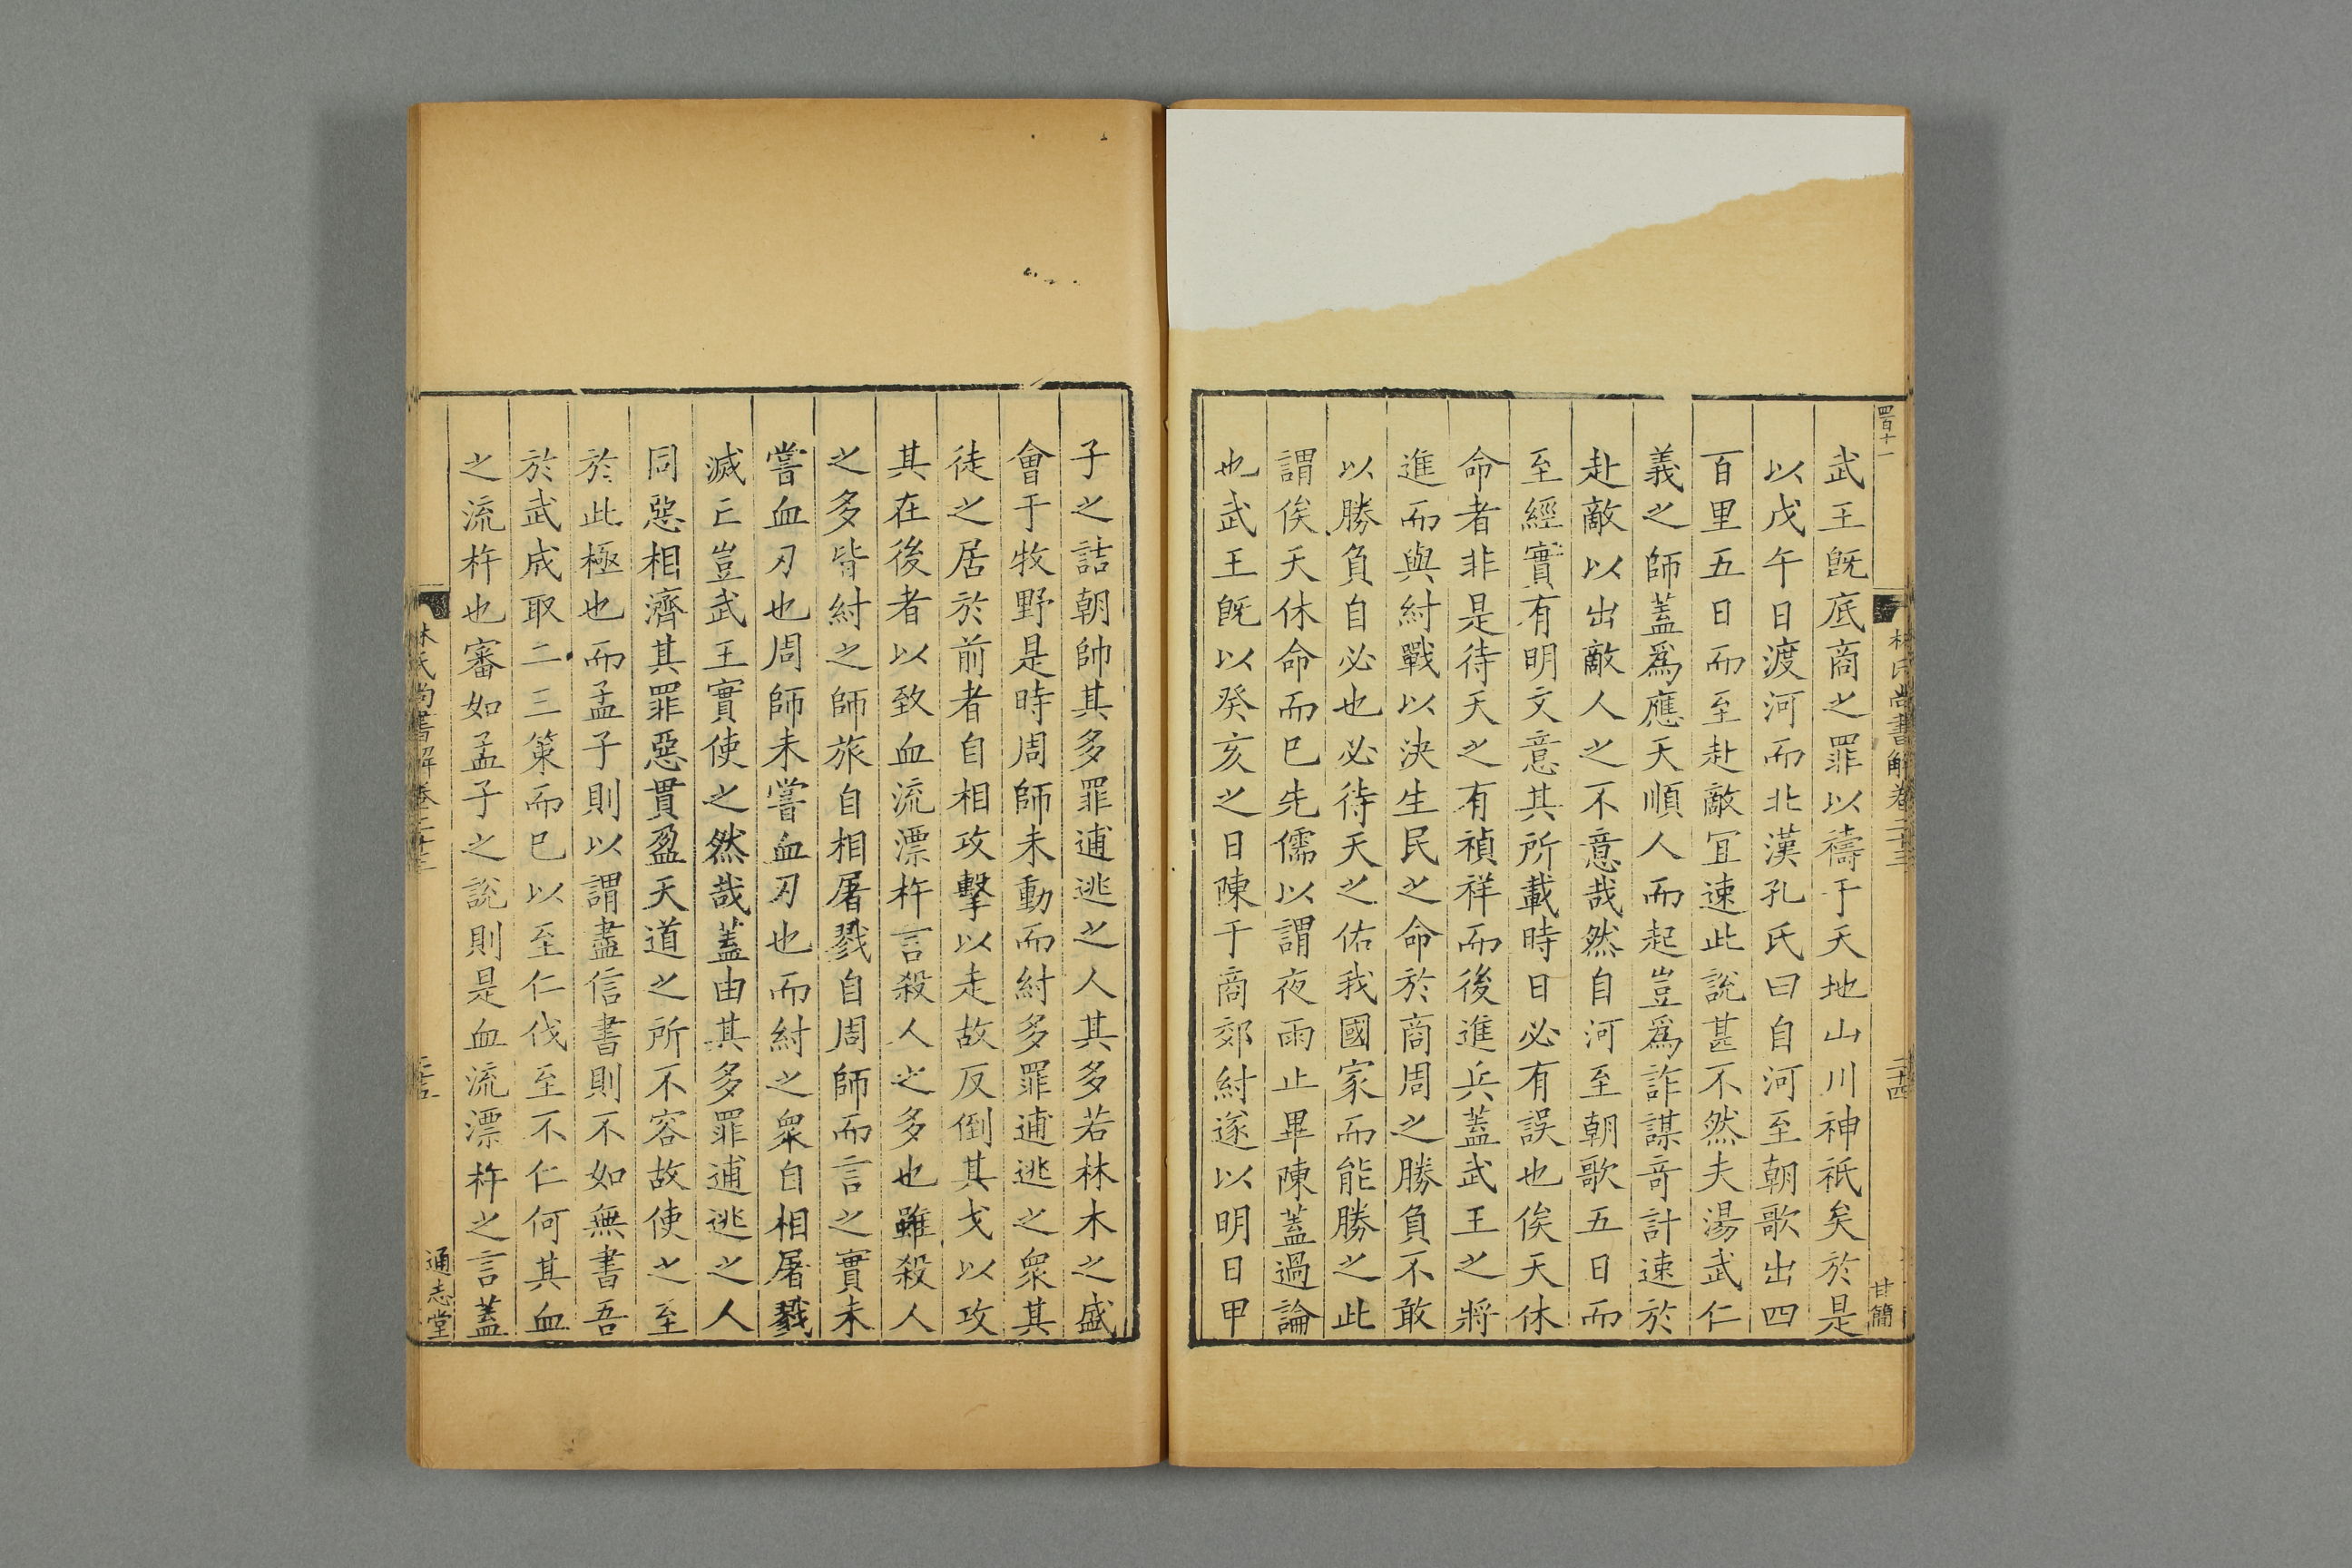 四百十一
林氏尚書解卷二十三
二十四
甘簡
武王旣底商之罪以禱于天地山川神祇矣於是
以戊午日渡河而北漢孔氏曰自河至朝歌出四
百里五日而至赴敵宜速此說甚不然夫湯武仁
義之師蓋爲應天順人而起豈爲詐謀竒計速於
赴敵以出敵人之不意哉然自河至朝歌五日而
至經實有明文意其所載時日必有誤也俟天休
命者非是待天之有禎祥而後進兵蓋武王之將
進而與紂戰以決生民之命於商周之勝負不敢
以勝負自必也必待天之佑我國家而能勝之此
謂俟天休命而巳先儒以謂夜雨止畢陳蓋過論
也武王旣以癸亥之日陳于商郊紂遂以明日甲
子之詰朝帥其多罪逋逃之人其多若林木之盛
會于牧野是時周師未動而紂多罪逋逃之衆其
徒之居於前者自相攻擊以走故反倒其戈以攻
其在後者以致血流漂杵言殺人之多也雖殺人
之多皆紂之師旅自相屠戮自周師而言之實未
嘗血刃也周師未嘗血刃也而紂之衆自相屠戮
滅亡豈武王實使之然哉蓋由其多罪逋逃之人
同惡相濟其罪惡貫盈天道之所不容故使之至
於此極也而孟子則以謂盡信書則不如無書吾
於武成取二三策而巳以至仁伐至不仁何其血
之流杵也審如孟子之說則是血流漂杵之言蓋
林氏尚書解卷二十三
通志堂